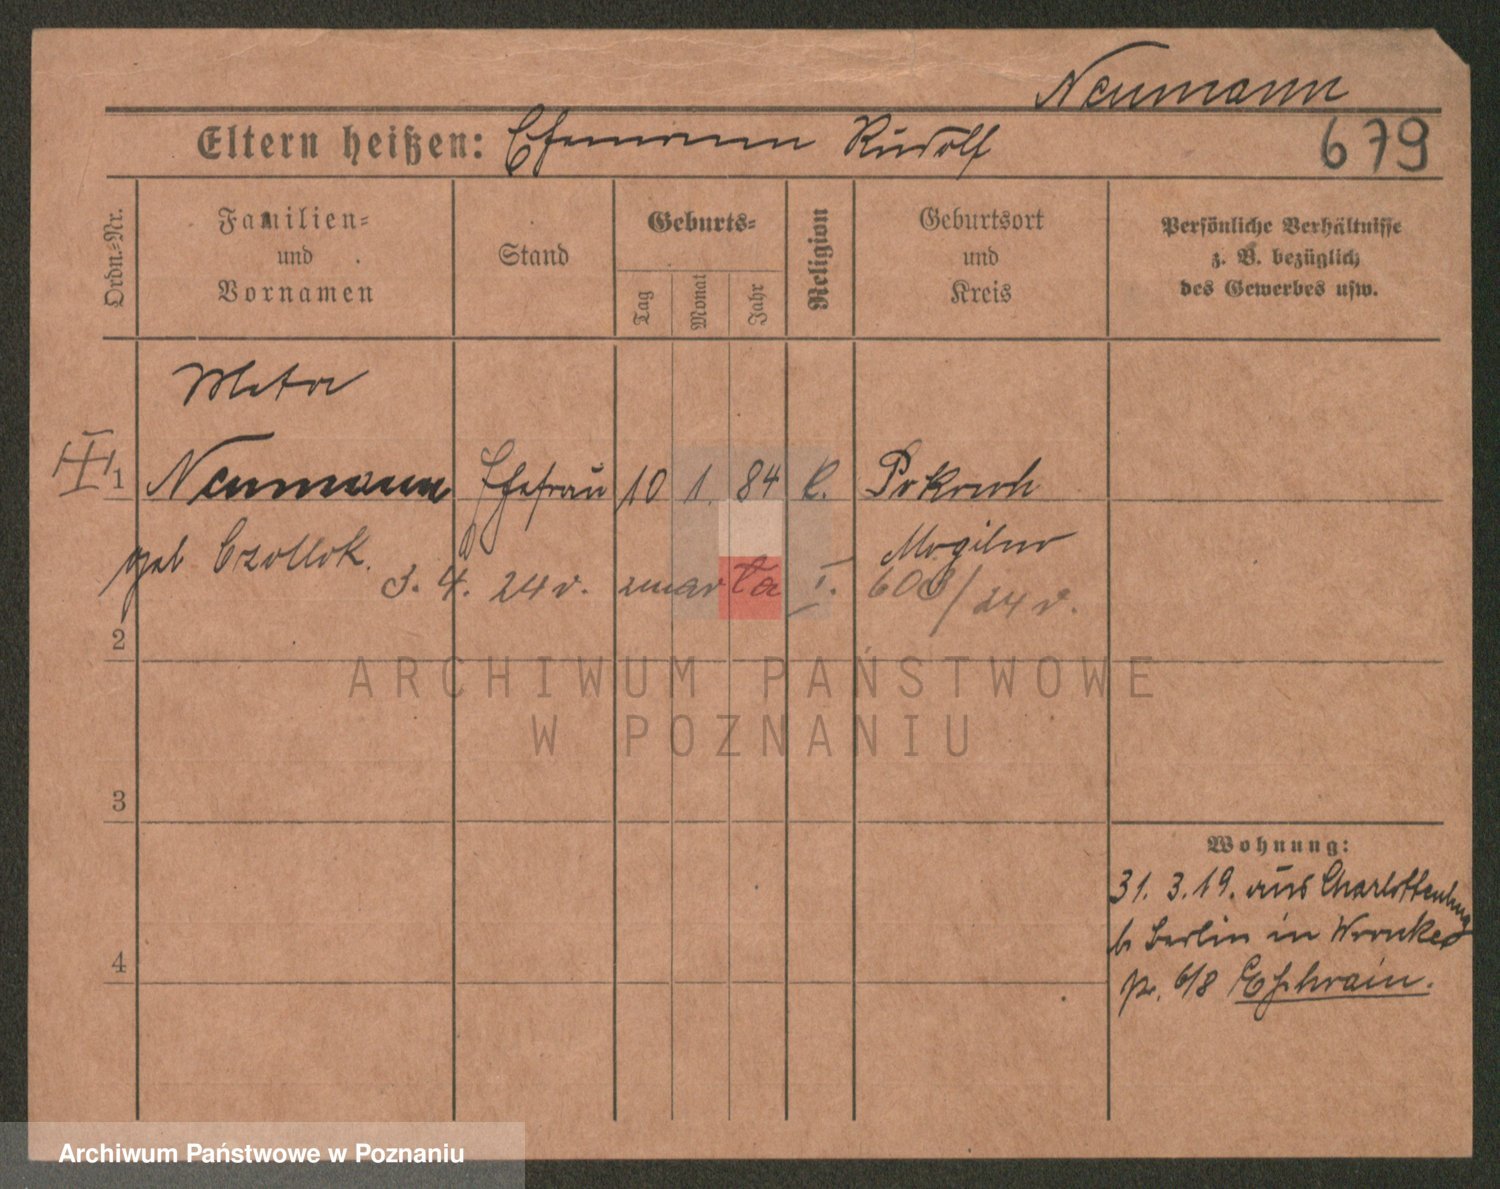 Neumann
Eltern heißen: Ehemann Rudolf
679
Ordn.-Nr.
Familien-
und
Vornamen
Stand
Geburts-
Tag
Monat
Jahr
Religion
Geburtsort
und
Kreis
Persönliche Verhältnisse
z. B. bezüglich
des Gewerbes usw.
Meta
1 Neumann Ehefrau 10 1. 84 Mogilno
geb
3. 4. 24 r. zmarła I. 608/24 r.
2
ARCHIWUM PAŃSTWOWE
W POZNANIU
3
Wohnung:
31. 3. 19. aus Charlottenburg
b Berlin in Wronke
4
p. 6/8 Ephraim.
Archiwum Państwowe w Poznaniu